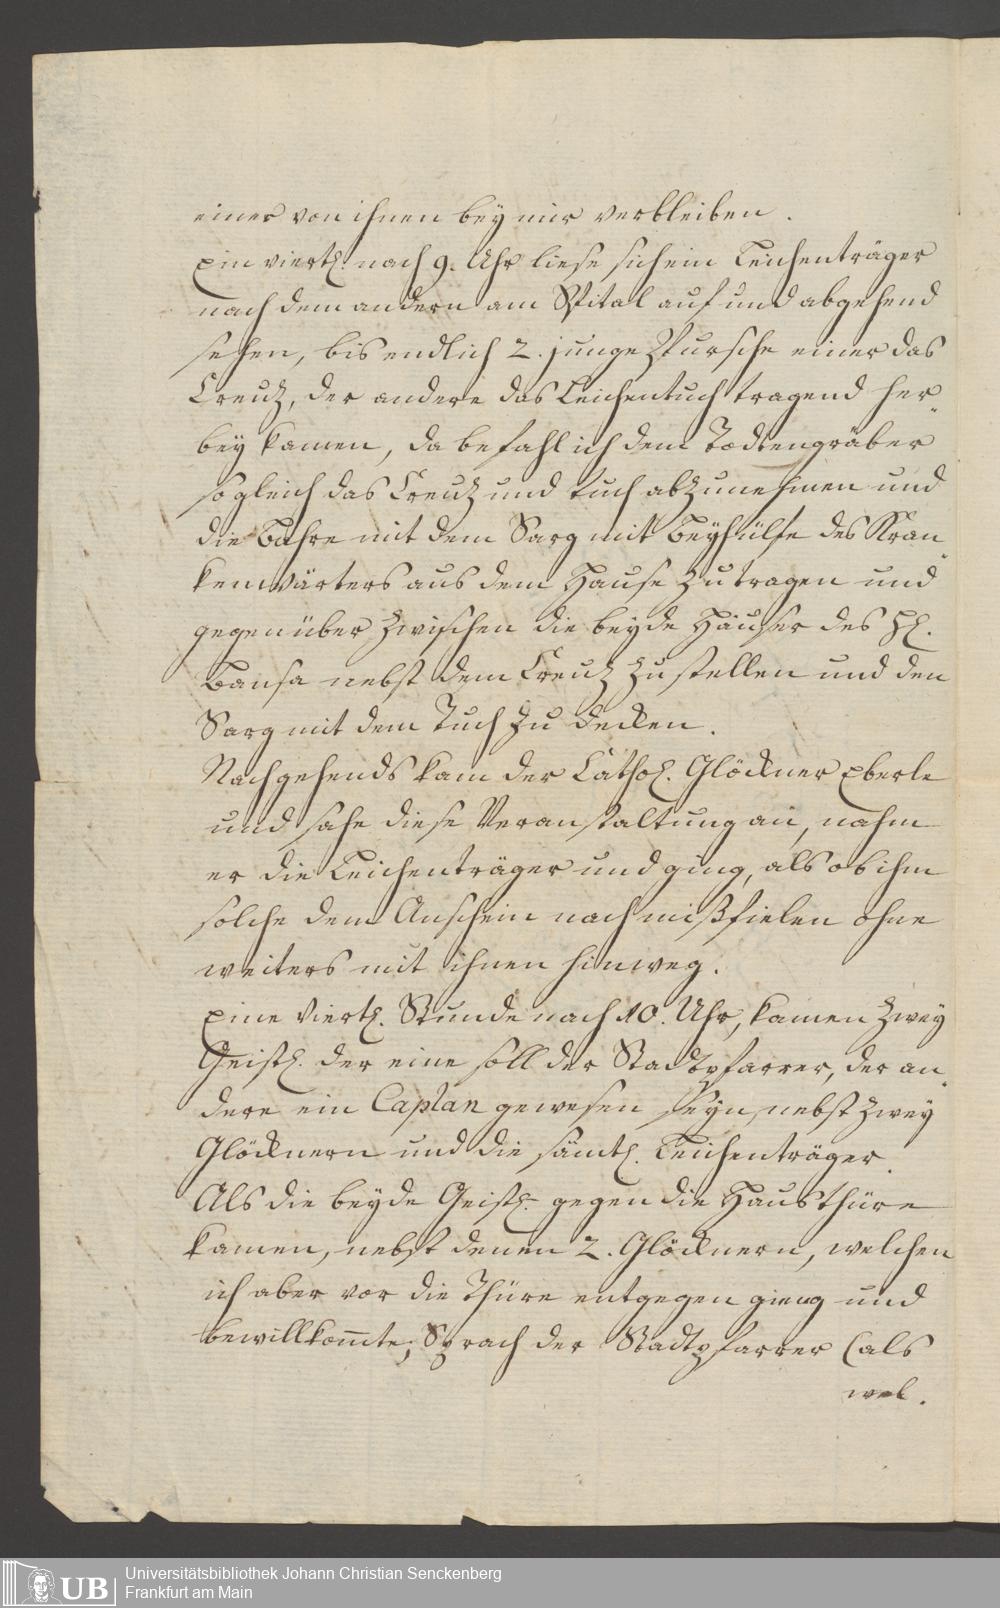 einer von ihnen bey mir verbleiben.
Ein viertl. nach 9. Uhr liese sich ein Leichenträger
nach dem andern am Spital auf und abgehend
sehen, bis endlich 2. junge Pursche einer das
Creutz, der andere das Leichentuch tragend her„
bey kamen, da befahl ich dem Todtengräber
sogleich das Creutz und tuch abzunehmen und
die Bahre mit dem Sarg mit Beyhülfe des Kran„
kenwärters aus dem Hause zu tragen und
gegenüber zwischen die beyde Häußer des H.
Bansa nebst dem Creutz zu stellen und den
Sarg mit dem Tuch zu decken.
Nachgehends kam der Cathol. Glöckner Eberle
und sahe diese Veranstaltung an, nahm
er die Leichenträger und ging, als ob ihm
solche dem Anschein nach mißfielen ohne
weiters mit ihnen hinweg.
Eine Viertl. Stunde nach 10. Uhr, kamen zwey
Geistl. der eine soll der Stadtpfarrer, der an„
dere ein Caplan gewesen seyn, nebst zwey
Glöcknern und die sämtl. Leichenträger.
Als die beyde Geistl. gegen die Hausthüre
kamen, nebst denen 2. Glöcknern, welchen
ich aber vor die Thüre entgegen gieng und
bewillkom̄te; Sprach der Stadtpfarrer (als
wel.
Universitätsbibliothek Johann Christian Senckenberg
UB Frankfurt am Main